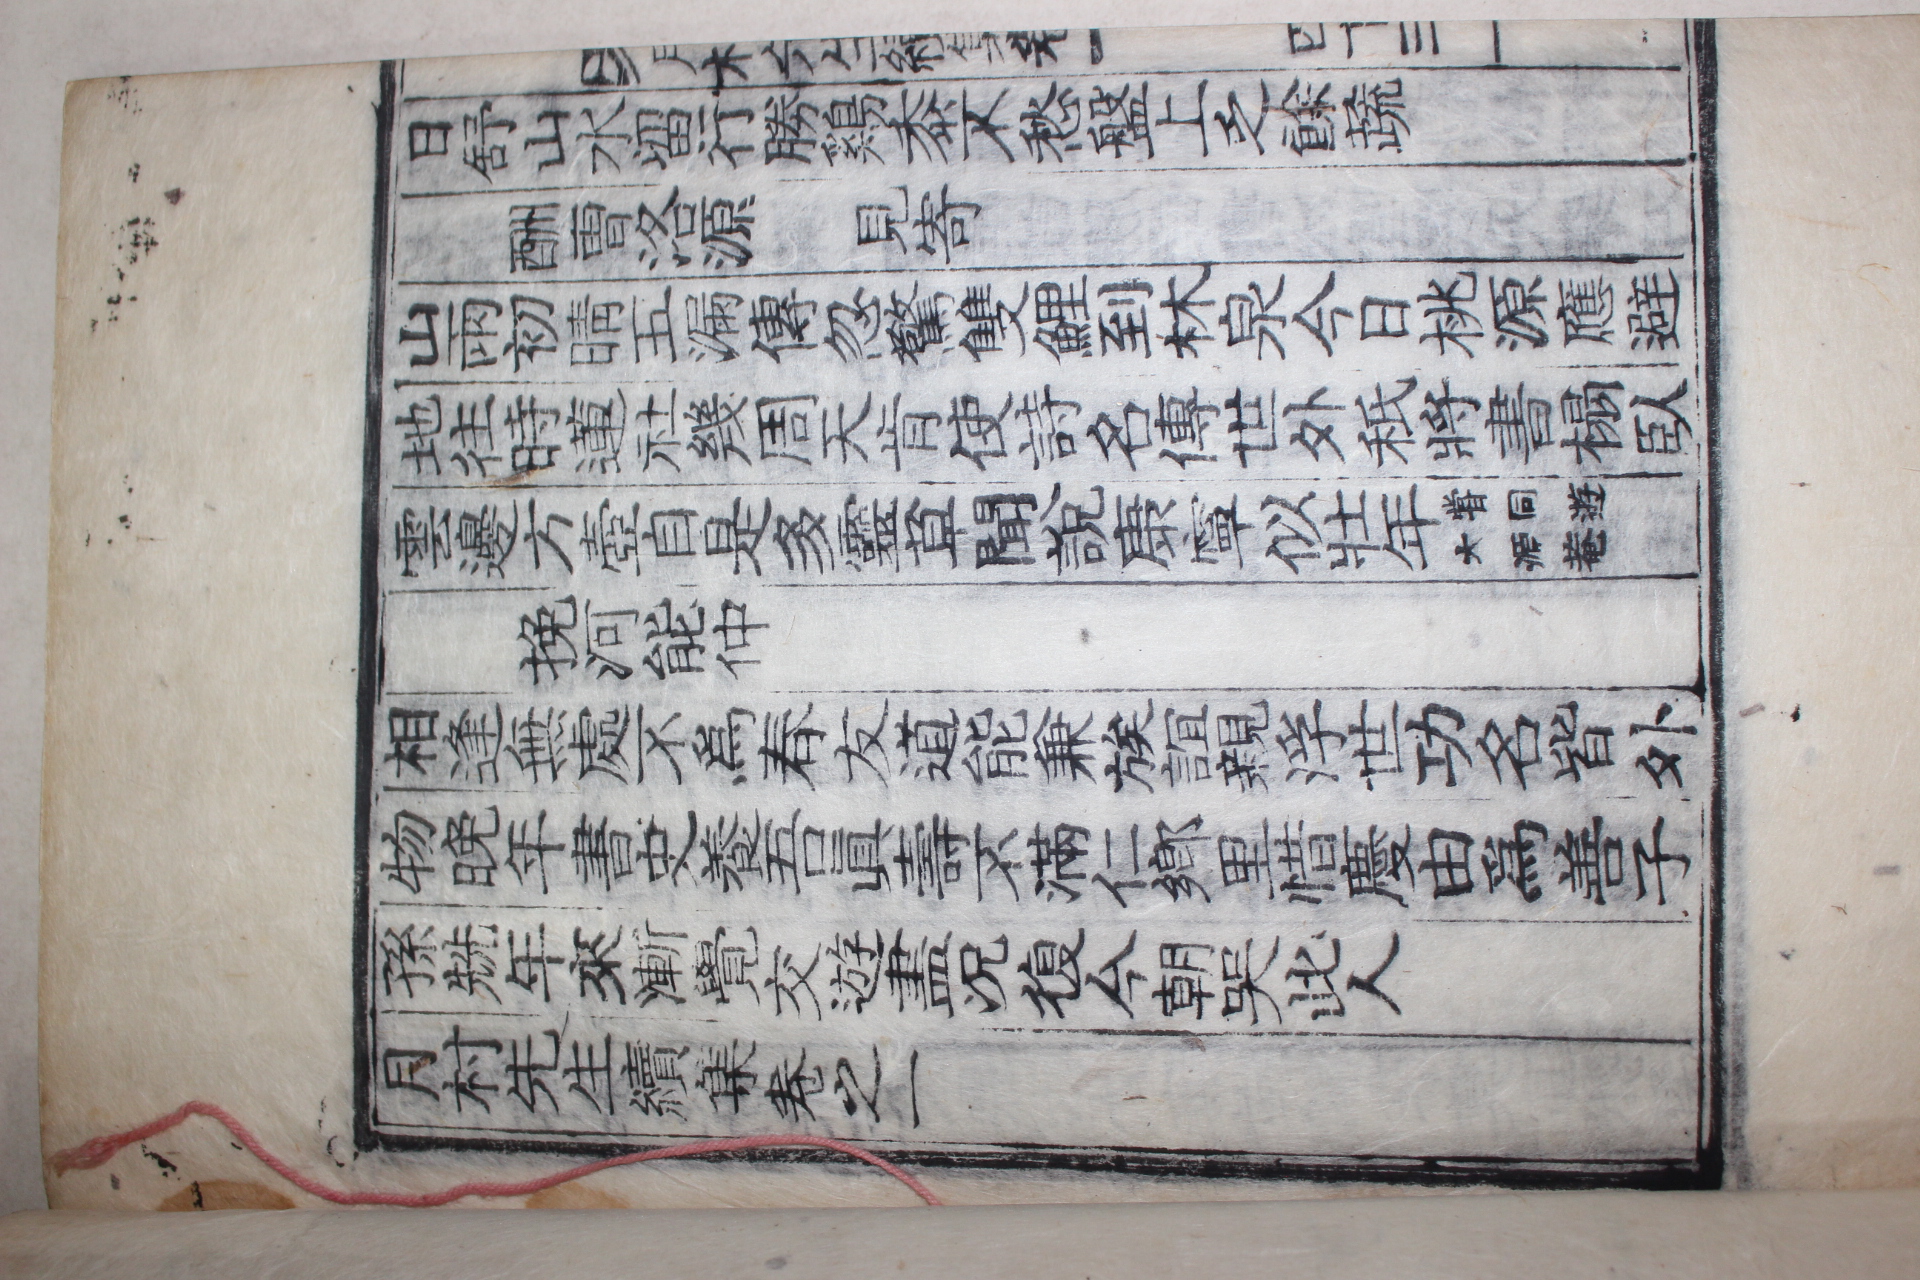 月村先生續集卷一
四十三
日舒山水留行勝鷄黍不愁盤上乏餘蔬
酬曺洛源 見寄
山兩初晴五漏傳忽驚雙鯉到林泉今日桃源應避
地往時蓮社幾周天肯使詩名傳世外秖將書榻臥
雲邊方壺自是多靈草聞說康寧似壯年嘗同遊大源菴
挽河能仲
相逢無處不爲春友道能兼族誼親浮世功名皆外
物晚年書史養吾眞壽不滿仁鄉里惜慶由爲善子
孫兟年來漸覺交遊盡况復今朝哭此人
月村先生續集卷之一